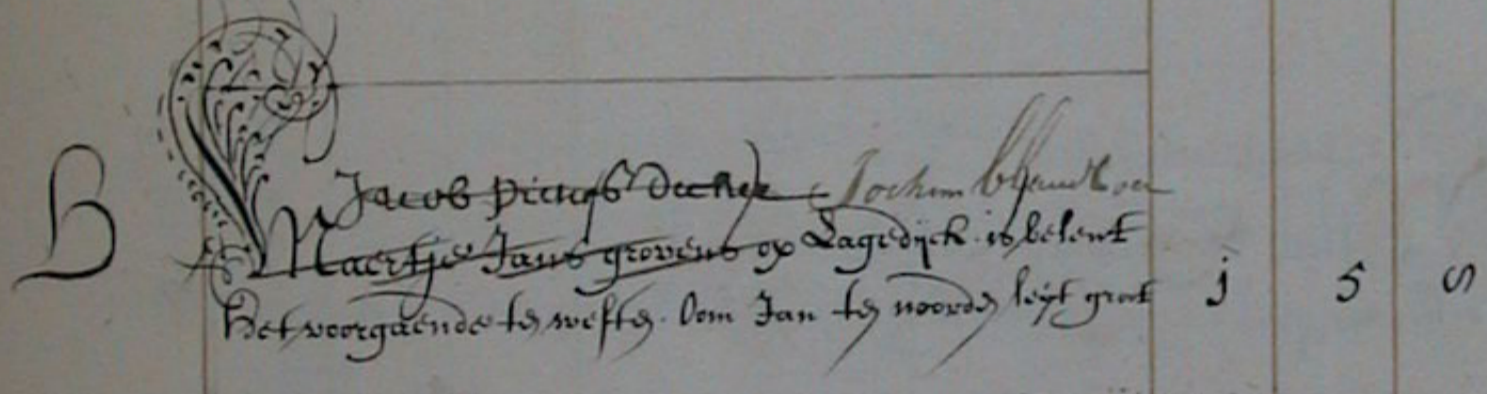 B
Jacob Jochim
Maertje Jans grovens op Lagedijck is belent
Het voorgaende ten westen. Oom Jan ten noorden leijt groot j 5 S